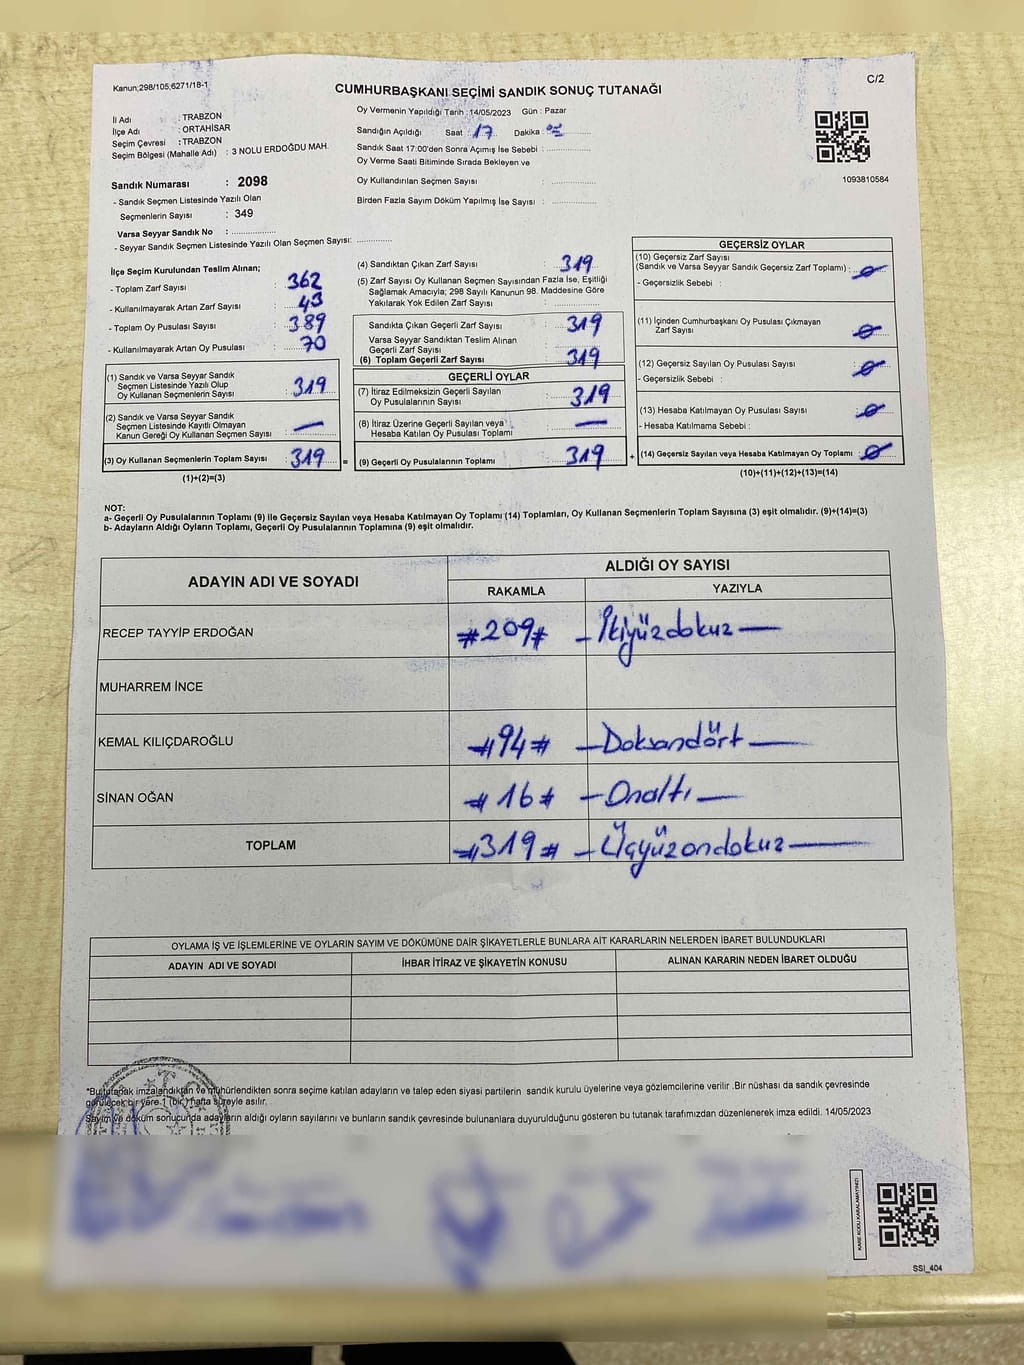 Kanun;298/105;6271/18-1
C/2
CUMHURBAŞKANI SEÇİMİ SANDIK SONUÇ TUTANAĞI
İl Adı : TRABZON
İlçe Adı : ORTAHİSAR
Seçim Çevresi : TRABZON
Seçim Bölgesi (Mahalle Adı) : 3 NOLU ERDOĞDU MAH.
Oy Vermenin Yapıldığı Tarih :14/05/2023 Gün : Pazar
Sandığın Açıldığı Saat : 17 Dakika :
Sandık Saat 17:00'den Sonra Açımış İse Sebebi :
Oy Verme Saati Bitiminde Sırada Bekleyen ve
Oy Kullandırılan Seçmen Sayısı :
Birden Fazla Sayım Döküm Yapılmış İse Sayısı :
1093810584
Sandık Numarası : 2098
- Sandık Seçmen Listesinde Yazılı Olan
Seçmenlerin Sayısı : 349
Varsa Seyyar Sandık No :
- Seyyar Sandık Seçmen Listesinde Yazılı Olan Seçmen Sayısı:
İlçe Seçim Kurulundan Teslim Alınan;
- Toplam Zarf Sayısı : 362
- Kullanılmayarak Artan Zarf Sayısı : 43
- Toplam Oy Pusulası Sayısı : 389
- Kullanılmayarak Artan Oy Pusulası : 70
(1) Sandık ve Varsa Seyyar Sandık
Seçmen Listesinde Yazılı Olup
Oy Kullanan Seçmenlerin Sayısı : 319
(2) Sandık ve Varsa Seyyar Sandık
Seçmen Listesinde Kayıtlı Olmayan
Kanun Gereği Oy Kullanan Seçmen Sayısı : —
(3) Oy Kullanan Seçmenlerin Toplam Sayısı : 319 =
(1)+(2)=(3)
(4) Sandıktan Çıkan Zarf Sayısı : 319
(5) Zarf Sayısı Oy Kullanan Seçmen Sayısından Fazla İse, Eşitliği
Sağlamak Amacıyla; 298 Sayılı Kanunun 98. Maddesine Göre
Yakılarak Yok Edilen Zarf Sayısı :
Sandıkta Çıkan Geçerli Zarf Sayısı : 319
Varsa Seyyar Sandıktan Teslim Alınan
Geçerli Zarf Sayısı :
(6) Toplam Geçerli Zarf Sayısı : 319
GEÇERLİ OYLAR
(7) İtiraz Edilmeksizin Geçerli Sayılan
Oy Pusulalarının Sayısı : 319
(8) İtiraz Üzerine Geçerli Sayılan veya
Hesaba Katılan Oy Pusulası Toplamı : —
(9) Geçerli Oy Pusulalarının Toplamı : 319 +
GEÇERSİZ OYLAR
(10) Geçersiz Zarf Sayısı
(Sandık ve Varsa Seyyar Sandık Geçersiz Zarf Toplamı) : Ø
- Geçersizlik Sebebi :
(11) İçinden Cumhurbaşkanı Oy Pusulası Çıkmayan
Zarf Sayısı : Ø
(12) Geçersiz Sayılan Oy Pusulası Sayısı : Ø
- Geçersizlik Sebebi :
(13) Hesaba Katılmayan Oy Pusulası Sayısı : Ø
- Hesaba Katılmama Sebebi :
(14) Geçersiz Sayılan veya Hesaba Katılmayan Oy Toplamı : Ø
(10)+(11)+(12)+(13)=(14)
NOT:
a- Geçerli Oy Pusulalarının Toplamı (9) ile Geçersiz Sayılan veya Hesaba Katılmayan Oy Toplamı (14) Toplamları, Oy Kullanan Seçmenlerin Toplam Sayısına (3) eşit olmalıdır. (9)+(14)=(3)
b- Adayların Aldığı Oyların Toplamı, Geçerli Oy Pusulalarının Toplamına (9) eşit olmalıdır.
ADAYIN ADI VE SOYADI
ALDIĞI OY SAYISI
RAKAMLA YAZIYLA
RECEP TAYYİP ERDOĞAN #209# - İkiyüzdokuz —
MUHARREM İNCE
KEMAL KILIÇDAROĞLU #94# - Doksandört —
SİNAN OĞAN #16# - Onaltı —
TOPLAM #319# - Üçyüzondokuz —
OYLAMA İŞ VE İŞLEMLERİNE VE OYLARIN SAYIM VE DÖKÜMÜNE DAİR ŞİKAYETLERLE BUNLARA AİT KARARLARIN NELERDEN İBARET BULUNDUKLARI
ADAYIN ADI VE SOYADI İHBAR İTİRAZ VE ŞİKAYETİN KONUSU ALINAN KARARIN NEDEN İBARET OLDUĞU
*Bu tutanak imzalandıktan ve mühürlendikten sonra seçime katılan adayların ve talep eden siyasi partilerin sandık kurulu üyelerine veya gözlemcilerine verilir .Bir nüshası da sandık çevresinde
görülecek bir yere 1 (bir) hafta süreyle asılır.
Sayım ve döküm sonucunda adayların aldığı oyların sayılarını ve bunların sandık çevresinde bulunanlara duyurulduğunu gösteren bu tutanak tarafımızdan düzenlenerek imza edildi. 14/05/2023
KARE KODU KARALAMAYINIZ!
SSI_404